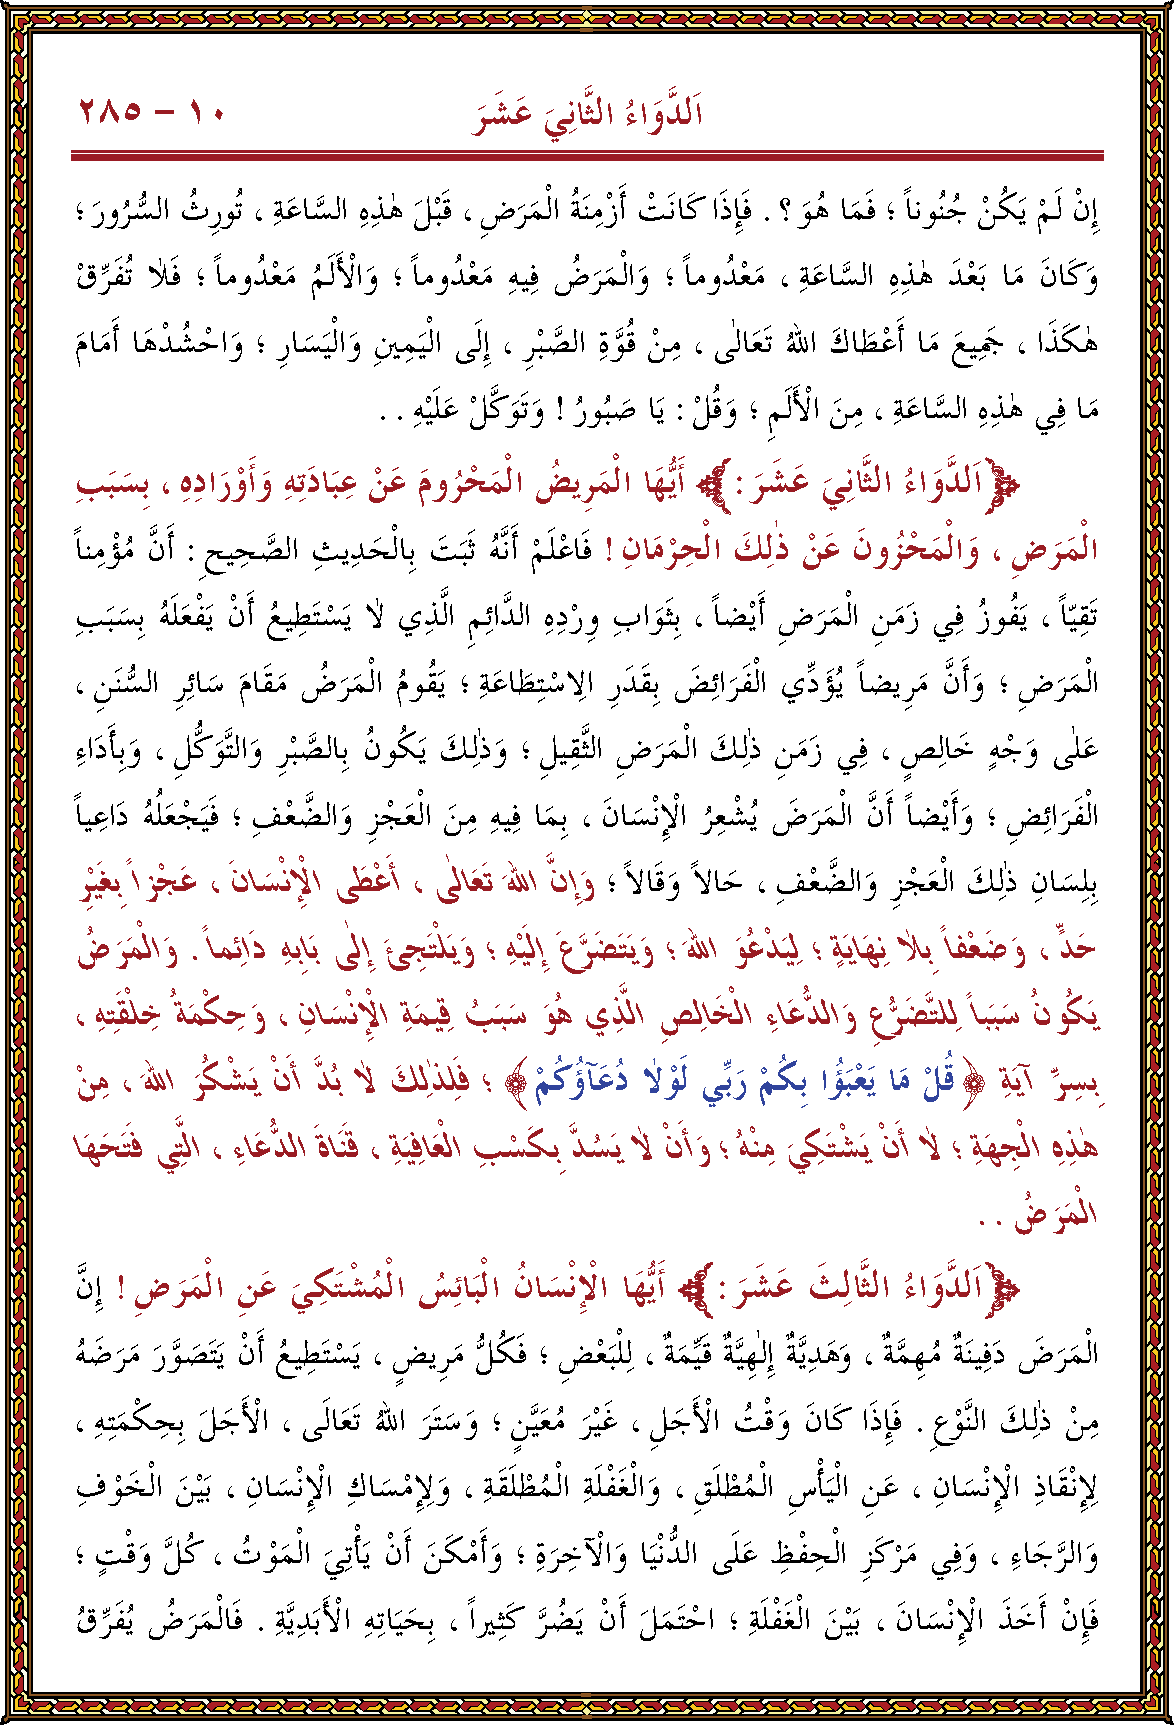 اَلدَّوَاءُ الثَّانِيَ عَشَرَ ١٠ – ٢٨٥
إِنْ لَمْ يَكُنْ جُنُوناً ؛ فَمَا هُوَ ؟ . فَإِذَا كَانَتْ أَزْمِنَةُ الْمَرَضِ ، قَبْلَ هٰذِهِ السَّاعَةِ ، تُورِثُ السُّرُورَ ؛
وَكَانَ مَا بَعْدَ هٰذِهِ السَّاعَةِ ، مَعْدُوماً ؛ وَالْمَرَضُ فِيهِ مَعْدُوماً ؛ وَالْأَلَمُ مَعْدُوماً ؛ فَلَا تُفَرِّقْ
هٰكَذَا ، جَمِيعَ مَا أَعْطَاكَ اللهُ تَعَالٰى ، مِنْ قُوَّةِ الصَّبْرِ ، إِلَى الْيَمِينِ وَالْيَسَارِ ؛ وَاحْشُدْهَا أَمَامَ
مَا فِي هٰذِهِ السَّاعَةِ ، مِنَ الْأَلَمِ ؛ وَقُلْ : يَا صَبُورُ ! وَتَوَكَّلْ عَلَيْهِ . .
﴿اَلدَّوَاءُ الثَّانِيَ عَشَرَ :﴾ أَيُّهَا الْمَرِيضُ الْمَحْرُومَ عَنْ عِبَادَتِهِ وَأَوْرَادِهِ ، بِسَبَبِ
الْمَرَضِ ، وَالْمَحْزُونَ عَنْ ذٰلِكَ الْحِرْمَانِ ! فَاعْلَمْ أَنَّهُ ثَبَتَ بِالْحَدِيثِ الصَّحِيحِ : أَنَّ مُؤْمِناً
تَقِيّاً ، يَفُوزُ فِي زَمَنِ الْمَرَضِ أَيْضاً ، بِثَوَابِ وِرْدِهِ الدَّائِمِ الَّذِي لَا يَسْتَطِيعُ أَنْ يَفْعَلَهُ بِسَبَبِ
الْمَرَضِ ؛ وَأَنَّ مَرِيضاً يُؤَدِّي الْفَرَائِضَ بِقَدَرِ الِاسْتِطَاعَةِ ؛ يَقُومُ الْمَرَضُ مَقَامَ سَائِرِ السُّنَنِ ،
عَلٰى وَجْهٍ خَالِصٍ ، فِي زَمَنِ ذٰلِكَ الْمَرَضِ الثَّقِيلِ ؛ وَذٰلِكَ يَكُونُ بِالصَّبْرِ وَالتَّوَكُّلِ ، وَبِأَدَاءِ
الْفَرَائِضِ ؛ وَأَيْضاً أَنَّ الْمَرَضَ يُشْعِرُ الْإِنْسَانَ ، بِمَا فِيهِ مِنَ الْعَجْزِ وَالضَّعْفِ ؛ فَيَجْعَلُهُ دَاعِياً
بِلِسَانِ ذٰلِكَ الْعَجْزِ وَالضَّعْفِ ، حَالاً وَقَالاً ؛ وَإِنَّ اللهَ تَعَالٰى ، أَعْطَى الْإِنْسَانَ ، عَجْزاً بِغَيْرِ
حَدٍّ ، وَضَعْفاً بِلَا نِهَايَةٍ ؛ لِيَدْعُوَ اللهَ ؛ وَيَتَضَرَّعَ إِلَيْهِ ؛ وَيَلْتَجِئَ إِلٰى بَابِهِ دَائِماً . وَالْمَرَضُ
يَكُونُ سَبَباً لِلتَّضَرُّعِ وَالدُّعَاءِ الْخَالِصِ الَّذِي هُوَ سَبَبُ قِيمَةِ الْإِنْسَانِ ، وَحِكْمَةُ خِلْقَتِهِ ،
بِسِرِّ آيَةِ ﴿قُلْ مَا يَعْبَؤُا بِكُمْ رَبِّي لَوْلَا دُعَآؤُكُمْ﴾ ؛ فَلِذٰلِكَ لَا بُدَّ أَنْ يَشْكُرَ اللهَ ، مِنْ
هٰذِهِ الْجِهَةِ ؛ لَا أَنْ يَشْتَكِيَ مِنْهُ ؛ وَأَنْ لَا يَسُدَّ بِكَسْبِ الْعَافِيَةِ ، قَنَاةَ الدُّعَاءِ ، الَّتِي فَتَحَهَا
الْمَرَضُ . .
﴿اَلدَّوَاءُ الثَّالِثَ عَشَرَ :﴾ أَيُّهَا الْإِنْسَانُ الْبَائِسُ الْمُشْتَكِيَ عَنِ الْمَرَضِ ! إِنَّ
الْمَرَضَ دَفِينَةٌ مُهِمَّةٌ ، وَهَدِيَّةٌ إِلٰهِيَّةٌ قَيِّمَةٌ ، لِلْبَعْضِ ؛ فَكُلُّ مَرِيضٍ ، يَسْتَطِيعُ أَنْ يَتَصَوَّرَ مَرَضَهُ
مِنْ ذٰلِكَ النَّوْعِ . فَإِذَا كَانَ وَقْتُ الْأَجَلِ ، غَيْرَ مُعَيَّنٍ ؛ وَسَتَرَ اللهُ تَعَالَى ، الْأَجَلَ بِحِكْمَتِهِ ،
لِإِنْقَاذِ الْإِنْسَانِ ، عَنِ الْيَأْسِ الْمُطْلَقِ ، وَالْغَفْلَةِ الْمُطْلَقَةِ ، وَلِإِمْسَاكِ الْإِنْسَانِ ، بَيْنَ الْخَوْفِ
وَالرَّجَاءِ ، وَفِي مَرْكَزِ الْحِفْظِ عَلَى الدُّنْيَا وَالْآخِرَةِ ؛ وَأَمْكَنَ أَنْ يَأْتِيَ الْمَوْتُ ، كُلَّ وَقْتٍ ؛
فَإِنْ أَخَذَ الْإِنْسَانَ ، بَيْنَ الْغَفْلَةِ ؛ احْتَمَلَ أَنْ يَضُرَّ كَثِيراً ، بِحَيَاتِهِ الْأَبَدِيَّةِ . فَالْمَرَضُ يُفَرِّقُ